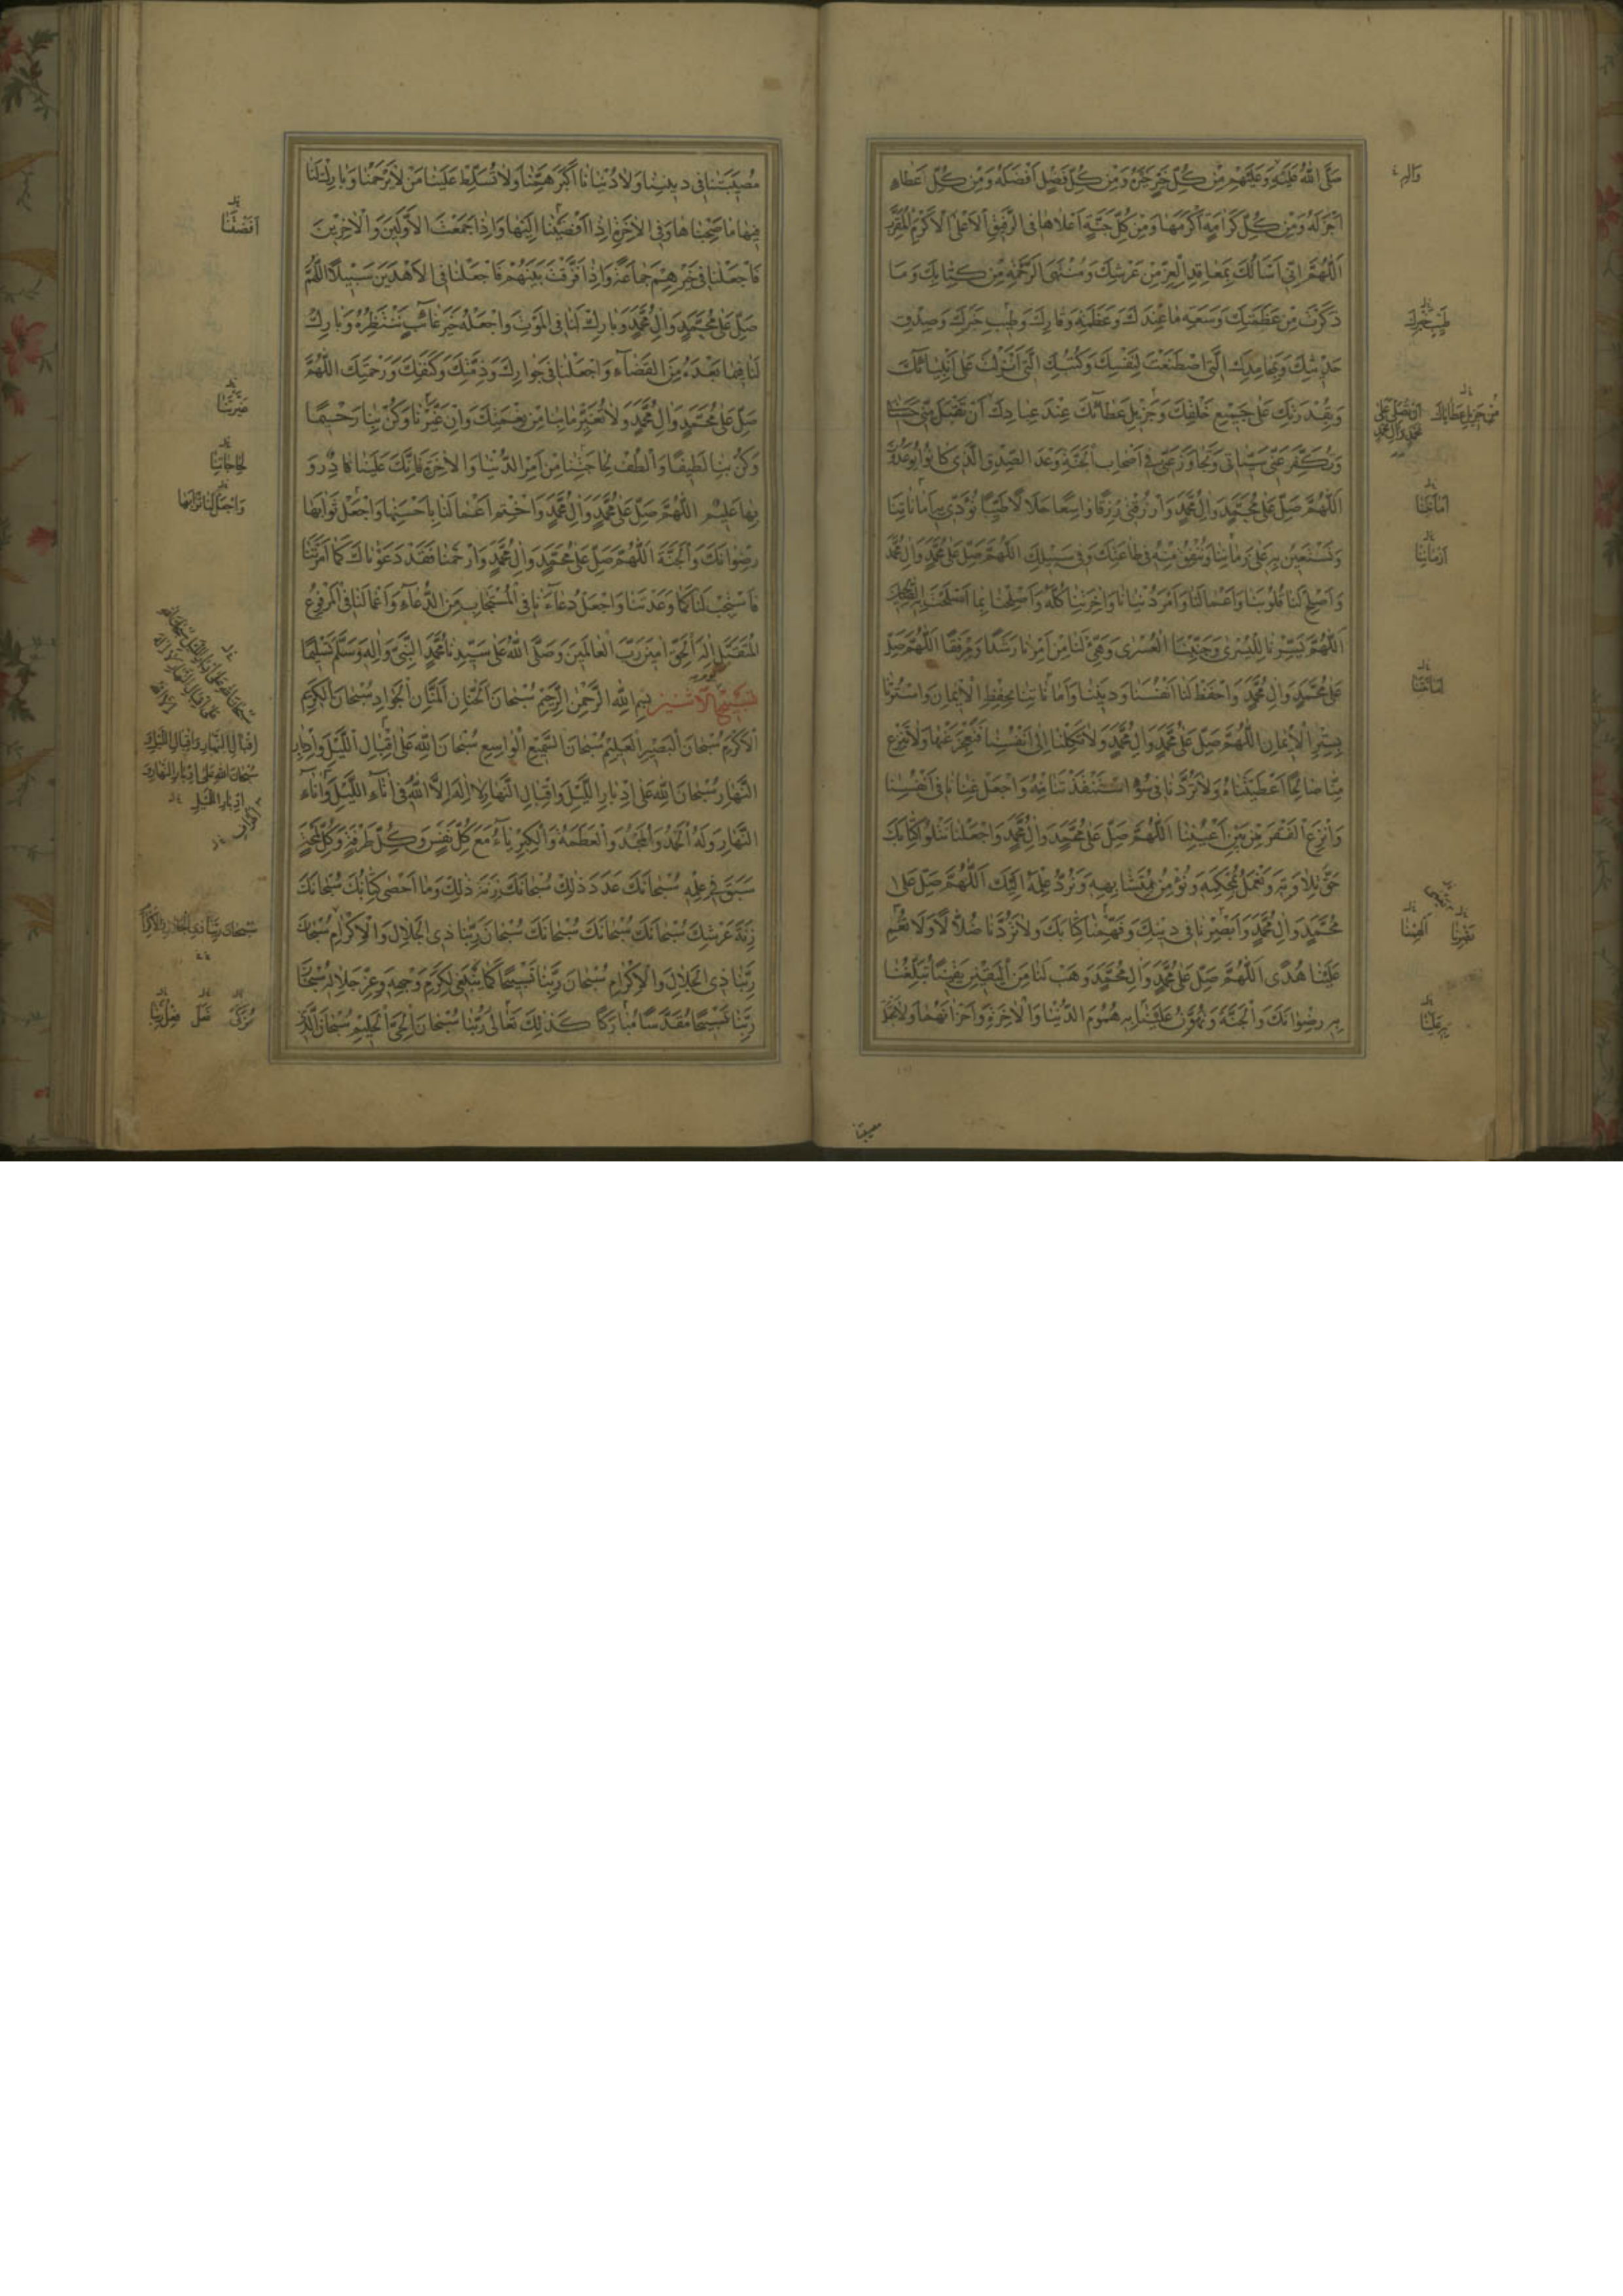 صَلَّى اللّٰهُ عَلَيْهِ وَعَلَيْهِمْ مِنْ كُلِّ خَيْرٍ خَيْرَهُ وَمِنْ كُلِّ فَضْلٍ اَفْضَلَهُ وَمِنْ كُلِّ اَعْطَاءٍ
اَجْزَلَهُ وَمِنْ كُلِّ كَرَامَةٍ اَكْرَمَهَا وَمِنْ كُلِّ جَنَّةٍ اَعْلَاهَا فِى الرَّفِيْقِ الْاَعْلَى الْاَكْرَمِ الْمُقَرَّبِ
اَللّٰهُمَّ اِنِّى اَسْاَلُكَ بِمَعَاقِدِ الْعِزِّ مِنْ عَرْشِكَ وَمُنْتَهَى الرَّحْمَةِ مِنْ كِتَابِكَ وَمَا
ذَكَرْتَ مِنْ عَظَمَتِكَ وَسَعَةِ مَا عِنْدَكَ وَعَظَمَةِ وَقَارِكَ وَطِيْبِ خَيْرِكَ وَصِدْقِ
حَدِيْثِكَ وَبِمَحَامِدِكَ الَّتِى اصْطَنَعْتَ لِنَفْسِكَ وَكُتُبِكَ الَّتِى اَنْزَلْتَ عَلٰى اَنْبِيَائِكَ
وَبِقُدْرَتِكَ عَلٰى جَمِيْعِ خَلْقِكَ وَجَزِيْلِ عَطَائِكَ عِنْدَ عِبَادِكَ اَنْ تَقْبَلَ مِنِّى حَسَنَاتِى
وَتُكَفِّرَ عَنِّى سَيِّئَاتِى وَتَجَاوَزَ عَنِّى فِى اَصْحَابِ الْجَنَّةِ وَعْدَ الصِّدْقِ الَّذِى كَانُوْا يُوْعَدُوْنَ
اَللّٰهُمَّ صَلِّ عَلٰى مُحَمَّدٍ وَاٰلِ مُحَمَّدٍ وَارْزُقْنِى رِزْقًا وَاسِعًا حَلَالًا طَيِّبًا نُؤَدِّى بِهِ اَمَانَاتِنَا
وَنَسْتَعِيْنُ بِهِ عَلٰى زَمَانِنَا وَنُنْفِقُ مِنْهُ فِى طَاعَتِكَ وَفِى سَبِيْلِكَ اَللّٰهُمَّ صَلِّ عَلٰى مُحَمَّدٍ وَاٰلِ مُحَمَّدٍ
وَاَصْلِحْ لَنَا قُلُوْبَنَا وَاَعْمَالَنَا وَاَمْرَ دُنْيَانَا وَاٰخِرَتِنَا كُلَّهُ وَاَصْلِحْنَا بِمَا اَصْلَحْتَ بِهِ الصَّالِحِيْنَ
اَللّٰهُمَّ يَسِّرْنَا لِلْيُسْرٰى وَجَنِّبْنَا الْعُسْرٰى وَهَيِّئْ لَنَا مِنْ اَمْرِنَا رَشَدًا وَمِرْفَقًا اَللّٰهُمَّ صَلِّ
عَلٰى مُحَمَّدٍ وَاٰلِ مُحَمَّدٍ وَاحْفَظْ لَنَا اَنْفُسَنَا وَدِيْنَنَا وَاَمَانَاتِنَا بِحِفْظِ الْاِيْمَانِ وَاسْتُرْنَا
بِسِتْرِ الْاِيْمَانِ اَللّٰهُمَّ صَلِّ عَلٰى مُحَمَّدٍ وَاٰلِ مُحَمَّدٍ وَلَا تَكِلْنَا اِلٰى اَنْفُسِنَا فَنَعْجِزَ عَنْهَا وَلَا تَنْزِعْ
مِنَّا صَالِحًا اَعْطَيْتَنَاهُ وَلَا تَرُدَّنَا فِى سُوْءٍ اسْتَنْقَذْتَنَا مِنْهُ وَاجْعَلْ غِنَانَا فِى اَنْفُسِنَا
وَانْزِعِ الْفَقْرَ مِنْ بَيْنِ اَعْيُنِنَا اَللّٰهُمَّ صَلِّ عَلٰى مُحَمَّدٍ وَاٰلِ مُحَمَّدٍ وَاجْعَلْنَا نَتْلُوْ كِتَابَكَ
حَقَّ تِلَاوَتِهِ وَنَعْمَلُ بِمُحْكَمِهِ وَنُؤْمِنُ بِمُتَشَابِهِهِ وَنَرُدُّ عِلْمَهُ اِلَيْكَ اَللّٰهُمَّ صَلِّ عَلٰى
مُحَمَّدٍ وَاٰلِ مُحَمَّدٍ وَابْصِرْنَا فِى دِيْنِكَ وَفَهِّمْنَا كِتَابَكَ وَلَا تَرُدَّنَا ضُلَّالًا وَلَا تُعْمِ
عَلَيْنَا هُدًى اَللّٰهُمَّ صَلِّ عَلٰى مُحَمَّدٍ وَاٰلِ مُحَمَّدٍ وَهَبْ لَنَا مِنَ الْيَقِيْنِ يَقِيْنًا تُبَلِّغُنَا
بِهِ رِضْوَانَكَ وَالْجَنَّةَ وَتُهَوِّنُ عَلَيْنَا بِهِ هُمُوْمَ الدُّنْيَا وَالْاٰخِرَةِ وَاَحْزَانَهُمَا وَلَا تَجْعَلْ
وَاٰلِهِ
طِيْبِ خَيْرِكَ
مِنْ جَزِيْلِ عَطَائِكَ
اَنْ تُصَلِّىَ عَلٰى
مُحَمَّدٍ وَاٰلِ مُحَمَّدٍ
اَمَانَتَنَا
اَزْمَانِنَا
بَصِّرْنَا
مصيبتنا
مُصِيْبَتَنَا فِى دِيْنِنَا وَلَا دُنْيَانَا اَكْبَرَ هَمِّنَا وَلَا تُسَلِّطْ عَلَيْنَا مَنْ لَا يَرْحَمُنَا وَبَارِكْ لَنَا
فِيْهَا مَا صَحِبْنَاهَا وَفِى الْاٰخِرَةِ اِذَا اَفْضَيْنَا اِلَيْهَا وَاِذَا جَمَعْتَ الْاَوَّلِيْنَ وَالْاٰخِرِيْنَ
فَاجْعَلْنَا فِى خَيْرِهِمْ جَمَاعَةً وَاِذَا فَرَّقْتَ بَيْنَهُمْ فَاجْعَلْنَا فِى الْاَهْدَيْنَ سَبِيْلًا اَللّٰهُمَّ
صَلِّ عَلٰى مُحَمَّدٍ وَاٰلِ مُحَمَّدٍ وَبَارِكْ لَنَا فِى الْمَوْتِ وَاجْعَلْهُ خَيْرَ غَائِبٍ نَنْتَظِرُهُ وَبَارِكْ
لَنَا فِيْمَا بَعْدَهُ مِنَ الْقَضَاءِ وَاجْعَلْنَا فِى جِوَارِكَ وَذِمَّتِكَ وَكَنَفِكَ وَرَحْمَتِكَ اَللّٰهُمَّ
صَلِّ عَلٰى مُحَمَّدٍ وَاٰلِ مُحَمَّدٍ وَلَا تُغَيِّرْ مَا بِنَا مِنْ نِعْمَتِكَ وَاِنْ غَيَّرْنَا وَكُنْ بِنَا رَحِيْمًا
وَكُنْ بِنَا لَطِيْفًا وَالْطُفْ لِحَاجَتِنَا مِنْ اَمْرِ الدُّنْيَا وَالْاٰخِرَةِ فَاِنَّكَ عَلَيْنَا قَادِرٌ وَ
بِهَا عَلِيْمٌ اَللّٰهُمَّ صَلِّ عَلٰى مُحَمَّدٍ وَاٰلِ مُحَمَّدٍ وَاخْتِمْ اَعْمَالَنَا بِاَحْسَنِهَا وَاجْعَلْ ثَوَابَهَا
رِضْوَانَكَ وَالْجَنَّةَ اَللّٰهُمَّ صَلِّ عَلٰى مُحَمَّدٍ وَاٰلِ مُحَمَّدٍ وَارْحَمْنَا فَقَدْ دَعَوْنَاكَ كَمَا اَمَرْتَنَا
فَاسْتَجِبْ لَنَا كَمَا وَعَدْتَنَا وَاجْعَلْ دُعَاءَنَا فِى الْمُسْتَجَابِ مِنَ الدُّعَاءِ وَاَعْمَالَنَا فِى الْمَرْفُوْعِ
الْمُتَقَبَّلِ اِلٰهَ الْحَقِّ اٰمِيْنَ رَبَّ الْعَالَمِيْنَ وَصَلَّى اللّٰهُ عَلٰى سَيِّدِنَا مُحَمَّدٍ النَّبِىِّ وَاٰلِهِ وَسَلَّمَ تَسْلِيْمًا
تَسْبِيْحُ الْاِثْنَيْنِ بِسْمِ اللّٰهِ الرَّحْمٰنِ الرَّحِيْمِ سُبْحَانَ الْحَنَّانِ الْمَنَّانِ الْجَوَادِ سُبْحَانَ الْكَرِيْمِ
الْاَكْرَمِ سُبْحَانَ الْبَصِيْرِ الْعَلِيْمِ سُبْحَانَ السَّمِيْعِ الْوَاسِعِ سُبْحَانَ اللّٰهِ عَلٰى اِقْبَالِ اللَّيْلِ وَاِدْبَارِ
النَّهَارِ سُبْحَانَ اللّٰهِ عَلٰى اِدْبَارِ اللَّيْلِ وَاِقْبَالِ النَّهَارِ لَا اِلٰهَ اِلَّا اللّٰهُ فِى اٰنَاءِ اللَّيْلِ وَاٰنَاءِ
النَّهَارِ وَلَهُ الْحَمْدُ وَالْمَجْدُ وَالْعَظَمَةُ وَالْكِبْرِيَاءُ مَعَ كُلِّ نَفَسٍ وَكُلِّ طَرْفَةٍ وَكُلِّ لَمْحَةٍ
سَبَقَ فِى عِلْمِهِ سُبْحَانَكَ عَدَدَ ذٰلِكَ سُبْحَانَكَ زِنَةَ ذٰلِكَ وَمَا اَحْصٰى كِتَابُكَ سُبْحَانَكَ
زِنَةَ عَرْشِكَ سُبْحَانَكَ سُبْحَانَكَ سُبْحَانَكَ سُبْحَانَ رَبِّنَا ذِى الْجَلَالِ وَالْاِكْرَامِ سُبْحَانَ
رَبِّنَا ذِى الْجَلَالِ وَالْاِكْرَامِ سُبْحَانَ رَبِّنَا تَسْبِيْحًا كَمَا يَنْبَغِى لِكَرَمِ وَجْهِهِ وَعِزِّ جَلَالِهِ سُبْحَانَ
رَبِّنَا تَسْبِيْحًا مُقَدَّسًا مُبَارَكًا كَذٰلِكَ تَعَالٰى رَبُّنَا سُبْحَانَ الْحَىِّ الْحَلِيْمِ سُبْحَانَ الَّذِى
اَفَضْتَنَا
لِحَاجَاتِنَا
وَاجْعَلْ لَنَا ثَوَابَهَا
اِقْبَالِ النَّهَارِ وَاِقْبَالِ اللَّيْلِ
سُبْحَانَ اللّٰهِ عَلٰى اِدْبَارِ النَّهَارِ وَ
اِدْبَارِ اللَّيْلِ
سُبْحَانَ رَبِّنَا ذِى الْجَلَالِ وَالْاِكْرَامِ